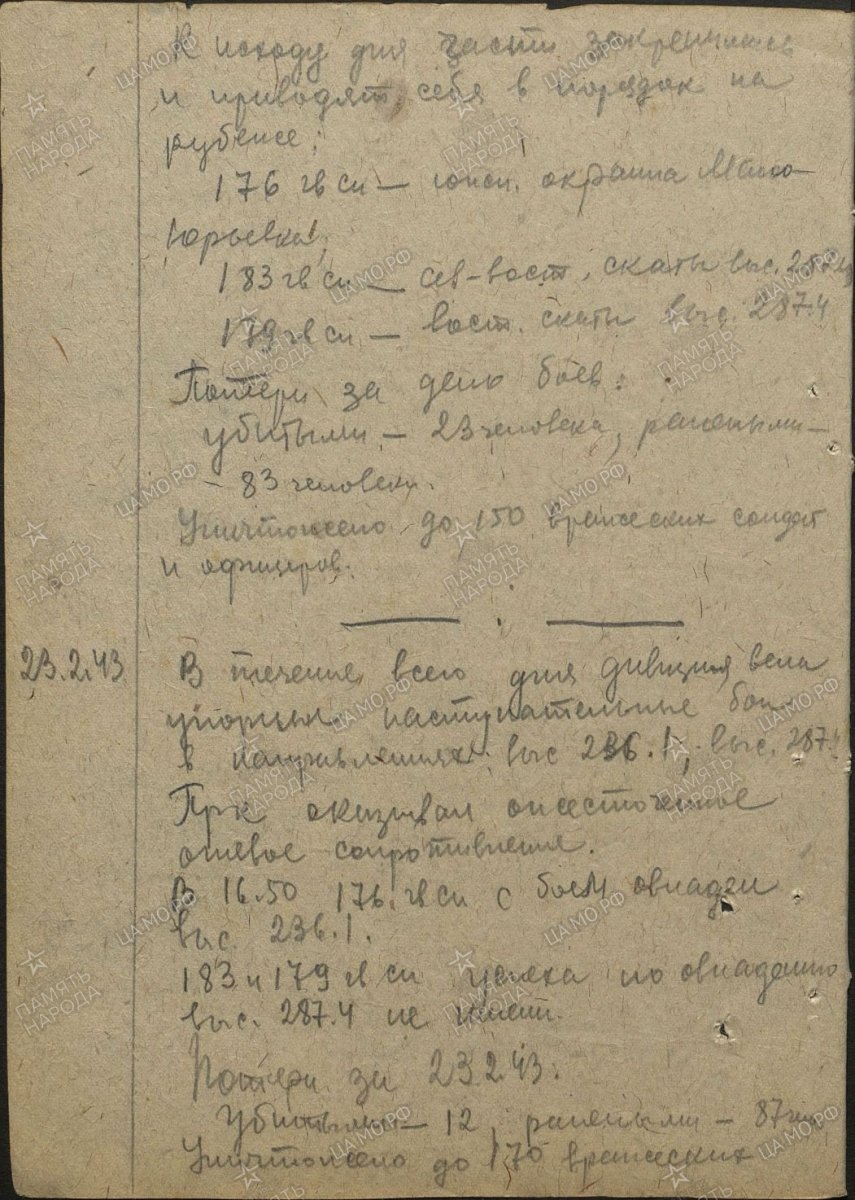 К исходу дня части закрепились
и приводят себя в порядок на
рубеже:
176 гв сп — южн. окраина Мало-
Юрьевка;
183 гв сп — сев-вост. скаты выс. 287.4
179 гв сп — вост. скаты выс. 287.4
Потери за день боев:
убитыми — 23 человека, ранеными —
— 83 человека.
Уничтожено до 150 вражеских солдат
и офицеров.
23.2.43 В течение всего дня дивизия вела
упорные наступательные бои
в направлениях выс 236.1, выс. 287.4
Пр-к оказывал ожесточенное
огневое сопротивление.
В 16.50 176 гв сп с боем овладел
выс. 236.1.
183 и 179 гв сп успеха по овладению
выс. 287.4 не имели.
Потери за 23.2.43:
Убитыми — 12, ранеными — 87 чел
Уничтожено до 170 вражеских
ПАМЯТЬ НАРОДА
ЦАМО.РФ